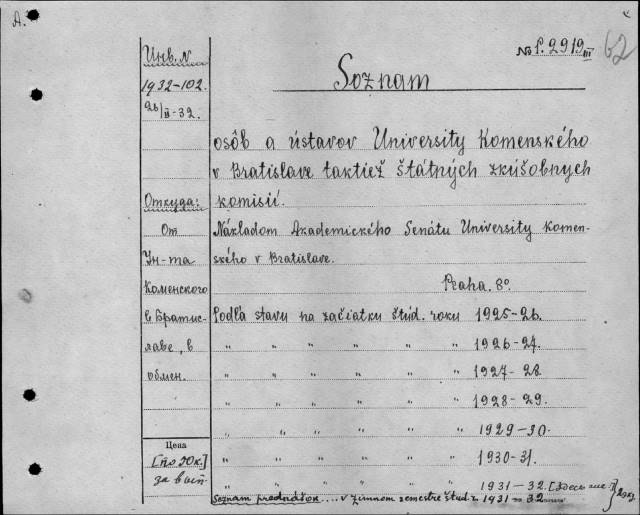 A.
№ P. 2919 III
62
Инв. N
1932-102.
26/II-32.
Soznam
osôb a ústavov University Komenského
v Bratislave taktiež štátných zkúšobnych
komisií.
Откуда:
От
Ун-та
Коменского
в Братис-
лаве, в
обмен.
Nákladom Akademického Senátu University Komen-
ského v Bratislave.
Praha. 8º.
Podľa stavu na začiatku štúd. roku 1925-26.
" " " " " " 1926-27.
" " " " " " 1927-28.
" " " " " " 1928-29.
" " " " " " 1929-30.
" " " " " " 1930-31.
" " " " " " 1931-32.
Soznam prednášok .... v zimnom semestre štud. r. 1931-32
Цена
[по 20 к.]
за вып.